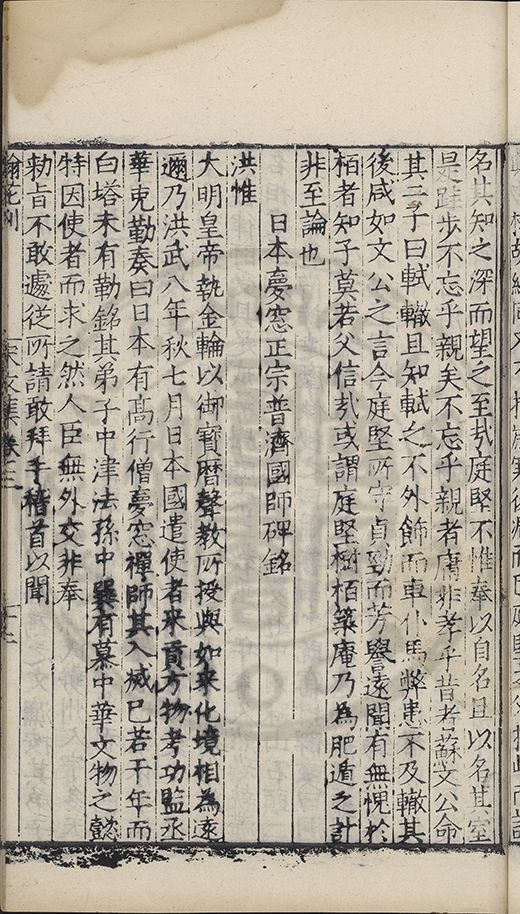 名其知之深而望之至㢤庭堅不惟奉以自名且以名其室
是跬步不忘乎親矣不忘乎親者庸非孝乎昔者蘇文公命
其二子曰軾轍且知軾之不外飾而車仆馬斃患不及轍其
後咸如文公之言今庭堅所守貞勁而芳譽遠聞有無愧於
栢者知子莫若父信㢤或謂庭堅樹栢築庵乃為肥遁之計
非至論也
日本夢窓正宗普濟國師碑銘
洪惟
大明皇帝執金輪以御寳曆聲教所授與如来化境相為遠
邇乃洪武八年秋七月日本國遣使者来貢方物考功監丞
華克勤奏曰日本有髙行僧夢窓禪師其入滅已若干年而
白塔未有勒銘其弟子中津法孫中巽有慕中華文物之懿
特因使者而求之然人臣無外交非奉
勅旨不敢遽從所請敢拜手稽首以聞
翰苑別